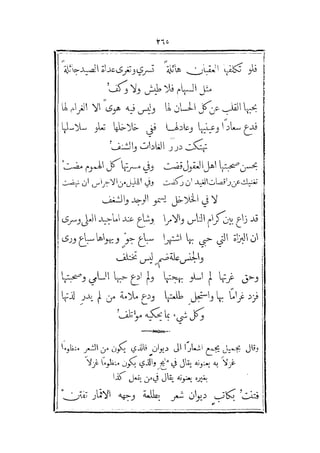 ٢٦٥
فلو تكلفها العقبان هائلةً تسري وتغرى غداة الصيد جائلةً
مثل السهام فلا طيش ولا وكف
يحبها القلب عن كل الحسان لها وليس فيه هوىً الا الغرام لها
فدع سعادًا وعينيها وعادلها ففي خلاخلها تعلو سلاسلها
تهتكت درر الغادات والشنف
بحسن صحبتها اهل العقول قضت وفي مسرتها كل الهموم مضت
تغنيك عن راقصات الغيد ان ركضت وفي الجلاجل من الاجراس ان نهضت
لا في الخلاخل يسمو الوجد والشغف
قد زاع بين كرام الناس والامرا وشاع عند اماجيد العلى وسرى
ان البزاة التي حبي بها اشتهرا سباع جوٍ ويهواها سباع ورى
والجنس علة ضمٍ ليس تختلف
وحق غرتها لم اسلو بهجتها ولم ادع حبها السامي وصحبتها
فزد غرامًا بها واستجلِ طلعتها ودع ملامة من لم يدرِ لذتها
وكل شيء بما يحكيه مؤتلف
وقال بجميل يجمع اشعارًا الى ديوان فالذي يكون من الشعر منظومًا
غزلاً به يعنونه يقال في مديح والذي يكون منظومًا غزلاً
بغيره يعنونه يقال في من يفعل كذا
فتنت بكاتب ديوان شعر بطلعة وجهه الاقمار تفتن